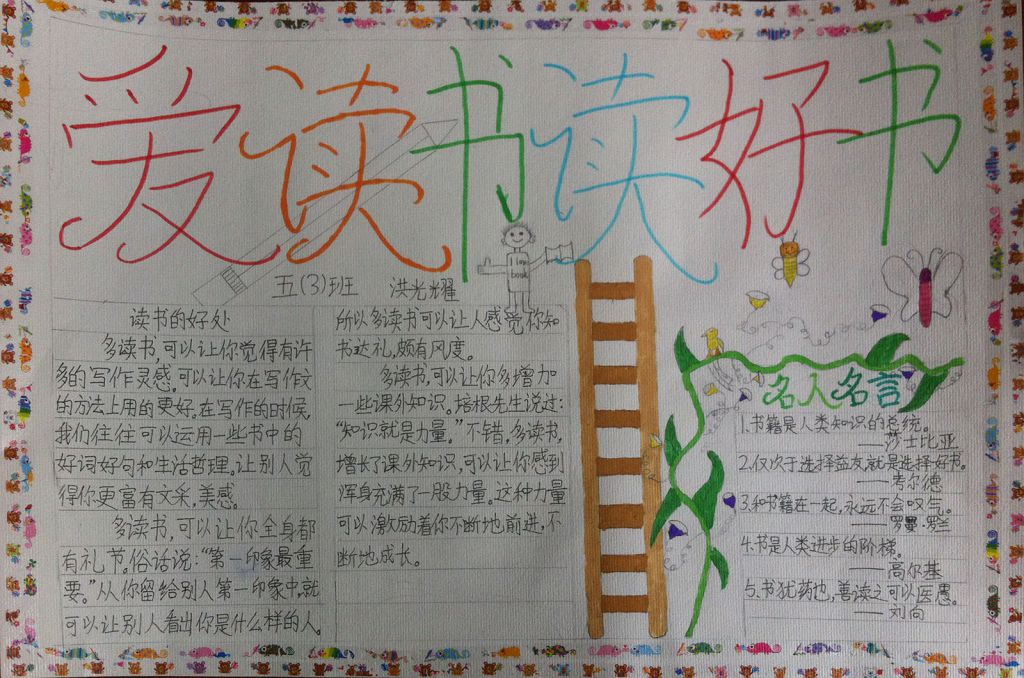 爱读书读好书
五(3)班 洪光耀
I love
book
读书的好处
多读书,可以让你觉得有许
多的写作灵感。可以让你在写作文
的方法上用的更好。在写作的时候,
我们往往可以运用一些书中的
好词好句和生活哲理。让别人觉
得你更富有文采,美感。
多读书,可以让你全身都
有礼节。俗话说:“第一印象最重
要。”从你留给别人第一印象中,就
可以让别人看出你是什么样的人。
所以多读书可以让人感觉你知
书达礼,颇有风度。
多读书,可以让你多增加
一些课外知识。培根先生说过:
“知识就是力量。”不错,多读书,
增长了课外知识,可以让你感到
浑身充满了一股力量。这种力量
可以激励着你不断地前进,不
断地成长。
名人名言
1.书籍是人类知识的总统。
——莎士比亚
2.仅次于选择益友,就是选择好书。
——考尔德
3.和书籍在一起,永远不会叹气。
——罗曼·罗兰
4.书是人类进步的阶梯。
——高尔基
5.书犹药也,善读之可以医愚。
——刘向